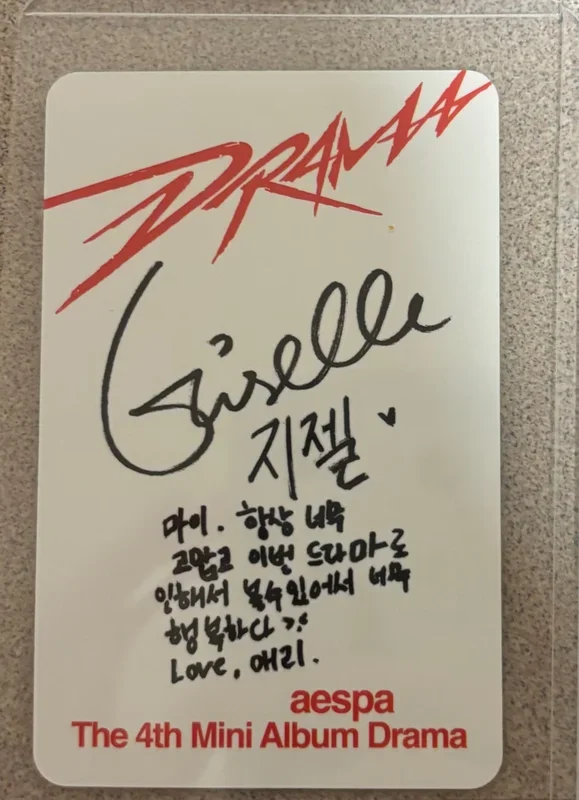 DRAMA
Giselle
지젤 ♥
마이. 항상 너무
고맙고 이번 드라마로
인해서 볼수있어서 너무
행복하다 >.<
Love, 애리.
aespa
The 4th Mini Album Drama